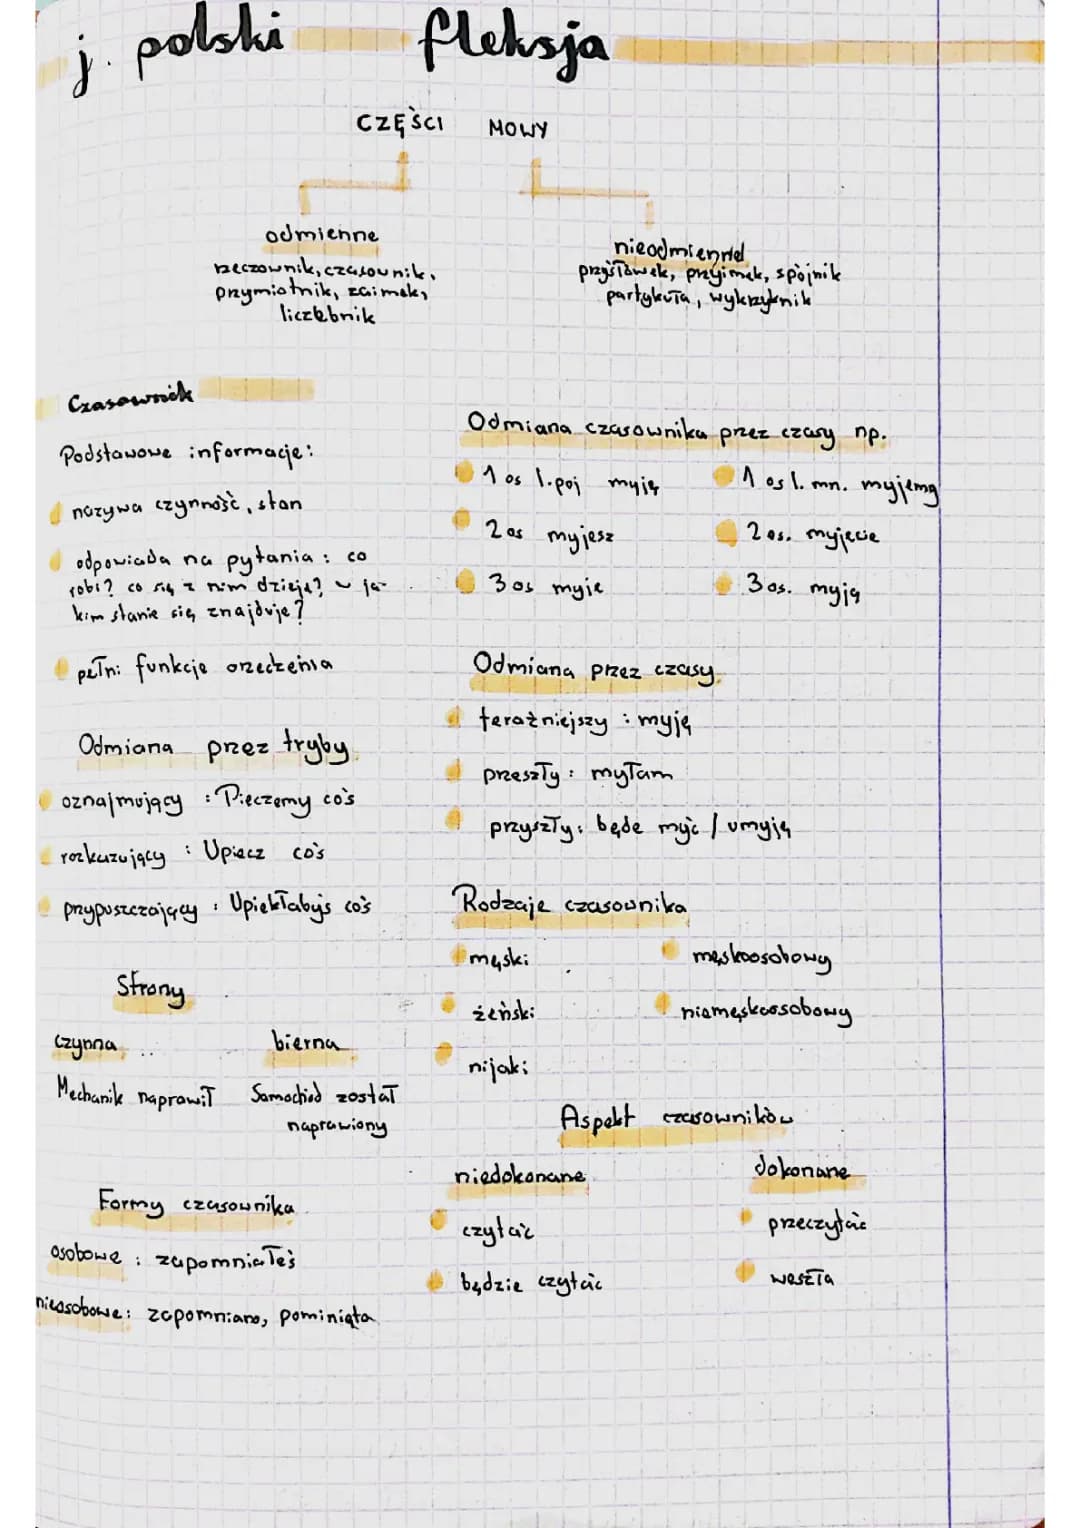 j. polski fleksja
CZĘŚCI MOWY
odmienne
rzeczownik, czasownik,
przymiotnik, zaimek,
liczebnik
nieodmienne
przysłówek, przyimek, spójnik
partykuła, wykrzyknik
Czasownik
Podstawowe informacje:
nazywa czynność, stan
odpowiada na pytania: co
robi? co się z nim dzieje? w ja-
kim stanie się znajduje?
pełni funkcje orzeczenia
Odmiana przez tryby
oznajmujący : Pieczemy coś
rozkazujący : Upiecz coś
przypuszczający : Upiekłabyś coś
Strony
czynna
bierna
Mechanik naprawił
Samochód został
naprawiony
Formy czasownika
osobowe : zapomniałeś
nieosobowe: zapomniano, pominięta
Odmiana czasownika przez czasy np.
1 os l.poj myję
1 os l. mn. myjemy
2 os myjesz
2 os. myjecie
3 os myje
3 os. myją
Odmiana przez czasy
teraźniejszy : myję
przeszły : myłam
przyszły: będe myć / umyję
Rodzaje czasownika
męski
męskoosobowy
żeński
niemęskoosobowy
nijaki
Aspekt czasowników
niedokonane
dokonane
czytać
przeczytać
będzie czytać
weszła